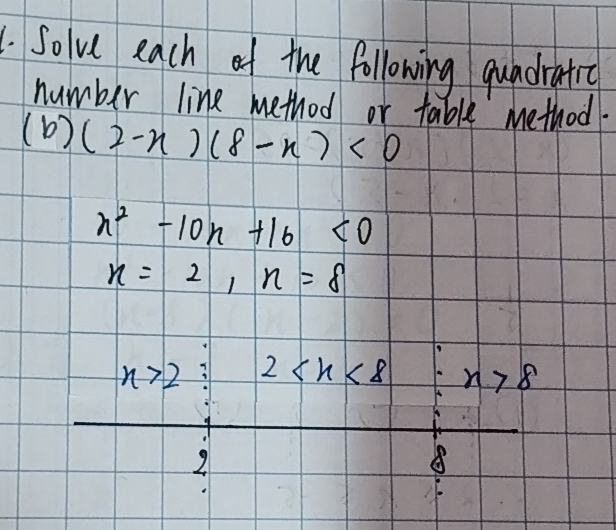 1. Solve each of the following quadratic
number line method or table method.
(b) (2-x)(8-x) < 0
x² -10x +16 <0
x = 2, x = 8
x>2 2<x<8 x>8
2 8